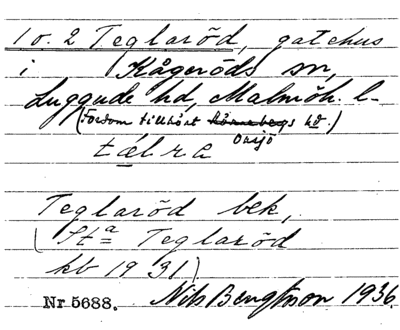 10.2 Teglaröd, gatehus
i Kågeröds sn,
Luggude hd, Malmöh. l.
(Fordom tillhört Rönnebergs hd.)
Onsjö
tálra
Teglaröd bek,
(St^a Teglaröd
kb 1931)
Nr 5688. Nils Bengtsson 1936.